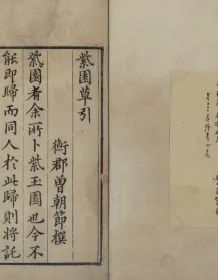 紫園草引
衡郡曾朝節撰
紫園者余所卜紫玉園也今不
能即歸而同人於此歸則將託